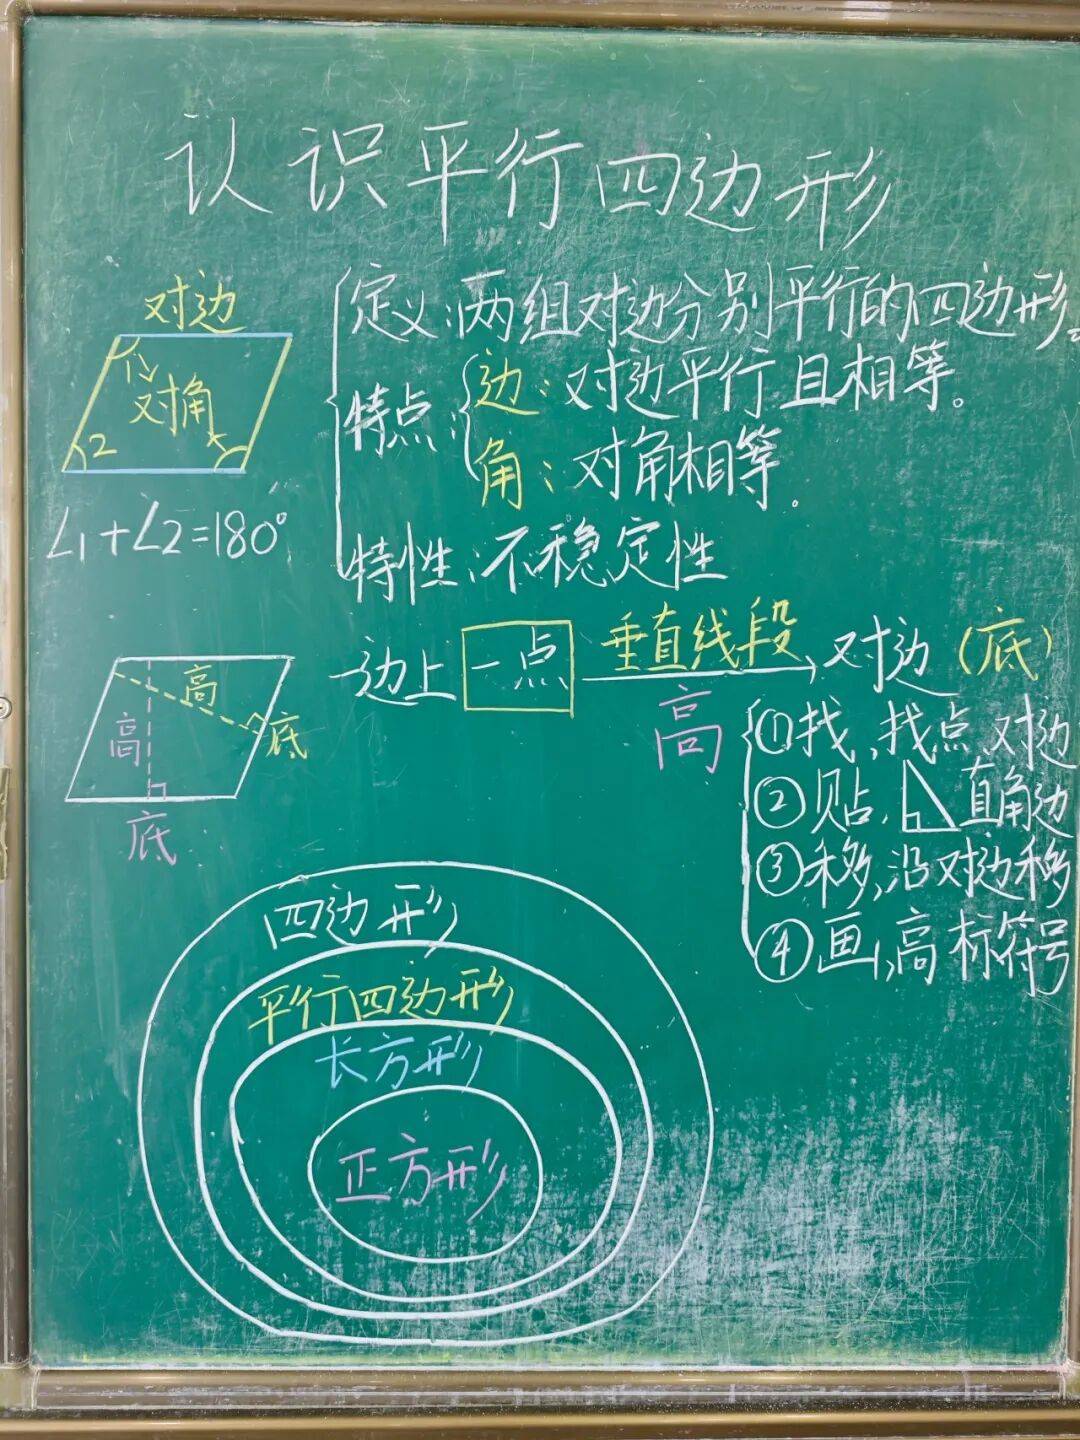 认识平行四边形
对边
1
对角
2
∠1+∠2=180°
定义:两组对边分别平行的四边形。
特点:
边:对边平行且相等。
角:对角相等。
特性:不稳定性
一边上 一点 垂直线段 对边(底)
高
①找,找点、对边
②贴,直角边
③移,沿对边移
④画,高 标符号
高
高
底
底
四边形
平行四边形
长方形
正方形